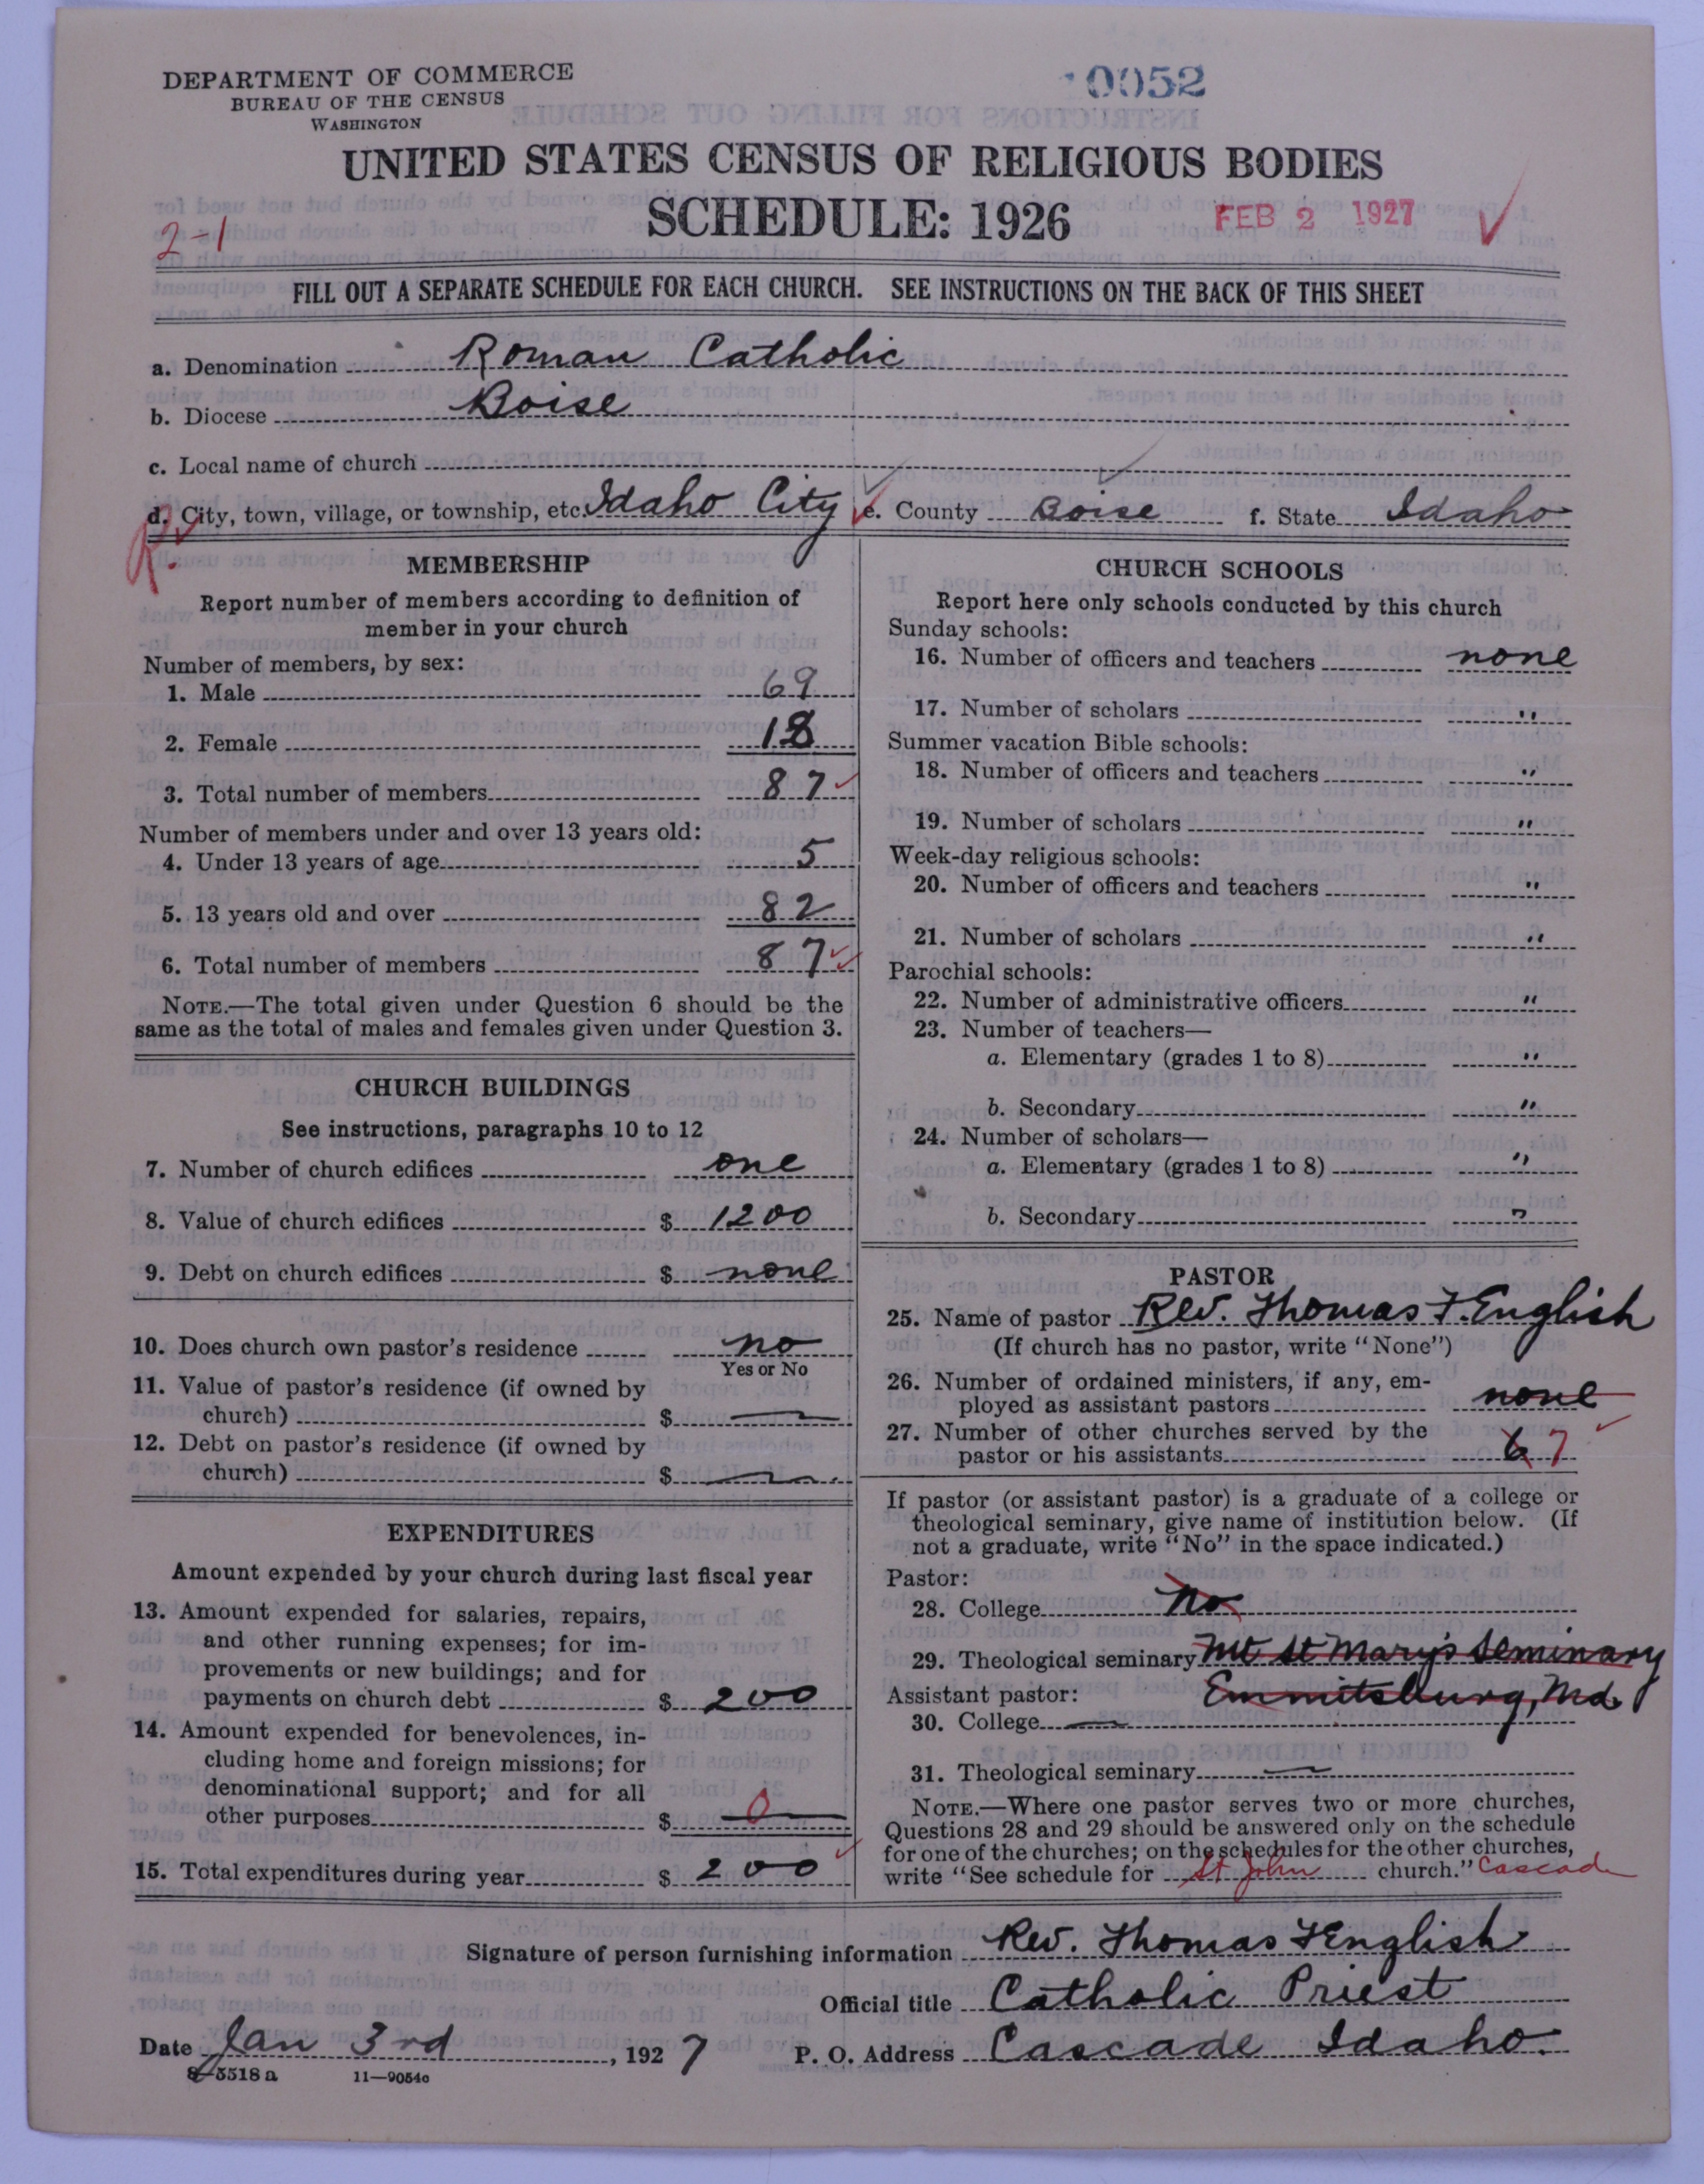 DEPARTMENT OF COMMERCE
BUREAU OF THE CENSUS
WASHINGTON
0052
UNITED STATES CENSUS OF RELIGIOUS BODIES
SCHEDULE: 1926
FEB 2 1927
2-1
FILL OUT A SEPARATE SCHEDULE FOR EACH CHURCH. SEE INSTRUCTIONS ON THE BACK OF THIS SHEET
a. Denomination Roman Catholic
b. Diocese Boise
c. Local name of church
d. City, town, village, or township, etc. Idaho City e. County Boise f. State Idaho
MEMBERSHIP
Report number of members according to definition of
member in your church
Number of members, by sex:
1. Male 69
2. Female 18
3. Total number of members 87
Number of members under and over 13 years old:
4. Under 13 years of age 5
5. 13 years old and over 82
6. Total number of members 87
NOTE.—The total given under Question 6 should be the
same as the total of males and females given under Question 3.
CHURCH BUILDINGS
See instructions, paragraphs 10 to 12
7. Number of church edifices one
8. Value of church edifices $ 1200
9. Debt on church edifices $ none
10. Does church own pastor's residence no
Yes or No
11. Value of pastor's residence (if owned by
church) $ —
12. Debt on pastor's residence (if owned by
church) $ —
EXPENDITURES
Amount expended by your church during last fiscal year
13. Amount expended for salaries, repairs,
and other running expenses; for im-
provements or new buildings; and for
payments on church debt $ 200
14. Amount expended for benevolences, in-
cluding home and foreign missions; for
denominational support; and for all
other purposes $ — 0
15. Total expenditures during year $ 200
CHURCH SCHOOLS
Report here only schools conducted by this church
Sunday schools:
16. Number of officers and teachers none
17. Number of scholars "
Summer vacation Bible schools:
18. Number of officers and teachers "
19. Number of scholars "
Week-day religious schools:
20. Number of officers and teachers "
21. Number of scholars "
Parochial schools:
22. Number of administrative officers "
23. Number of teachers—
a. Elementary (grades 1 to 8) "
b. Secondary "
24. Number of scholars—
a. Elementary (grades 1 to 8) "
b. Secondary "
PASTOR
25. Name of pastor Rev. Thomas F. English
(If church has no pastor, write "None")
26. Number of ordained ministers, if any, em-
ployed as assistant pastors none
27. Number of other churches served by the
pastor or his assistants 6 7
If pastor (or assistant pastor) is a graduate of a college or
theological seminary, give name of institution below. (If
not a graduate, write "No" in the space indicated.)
Pastor:
28. College No
29. Theological seminary Mt St Mary's Seminary
Emmitsburg, Md.
Assistant pastor:
30. College —
31. Theological seminary —
NOTE.—Where one pastor serves two or more churches,
Questions 28 and 29 should be answered only on the schedule
for one of the churches; on the schedules for the other churches,
write "See schedule for St John church." Cascade
Signature of person furnishing information Rev. Thomas F English
Official title Catholic Priest
Date Jan 3rd, 1927 P. O. Address Cascade Idaho.
8-5518a 11—9054c